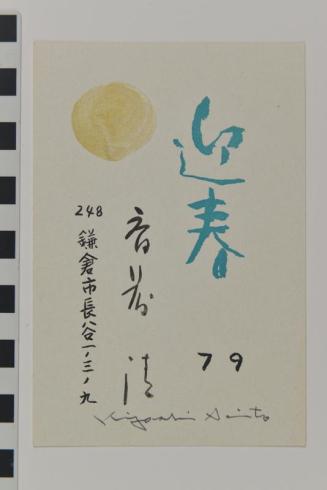 迎春
79
斉藤 清
248
鎌倉市長谷一ノ三ノ九
Kiyoshi Saito